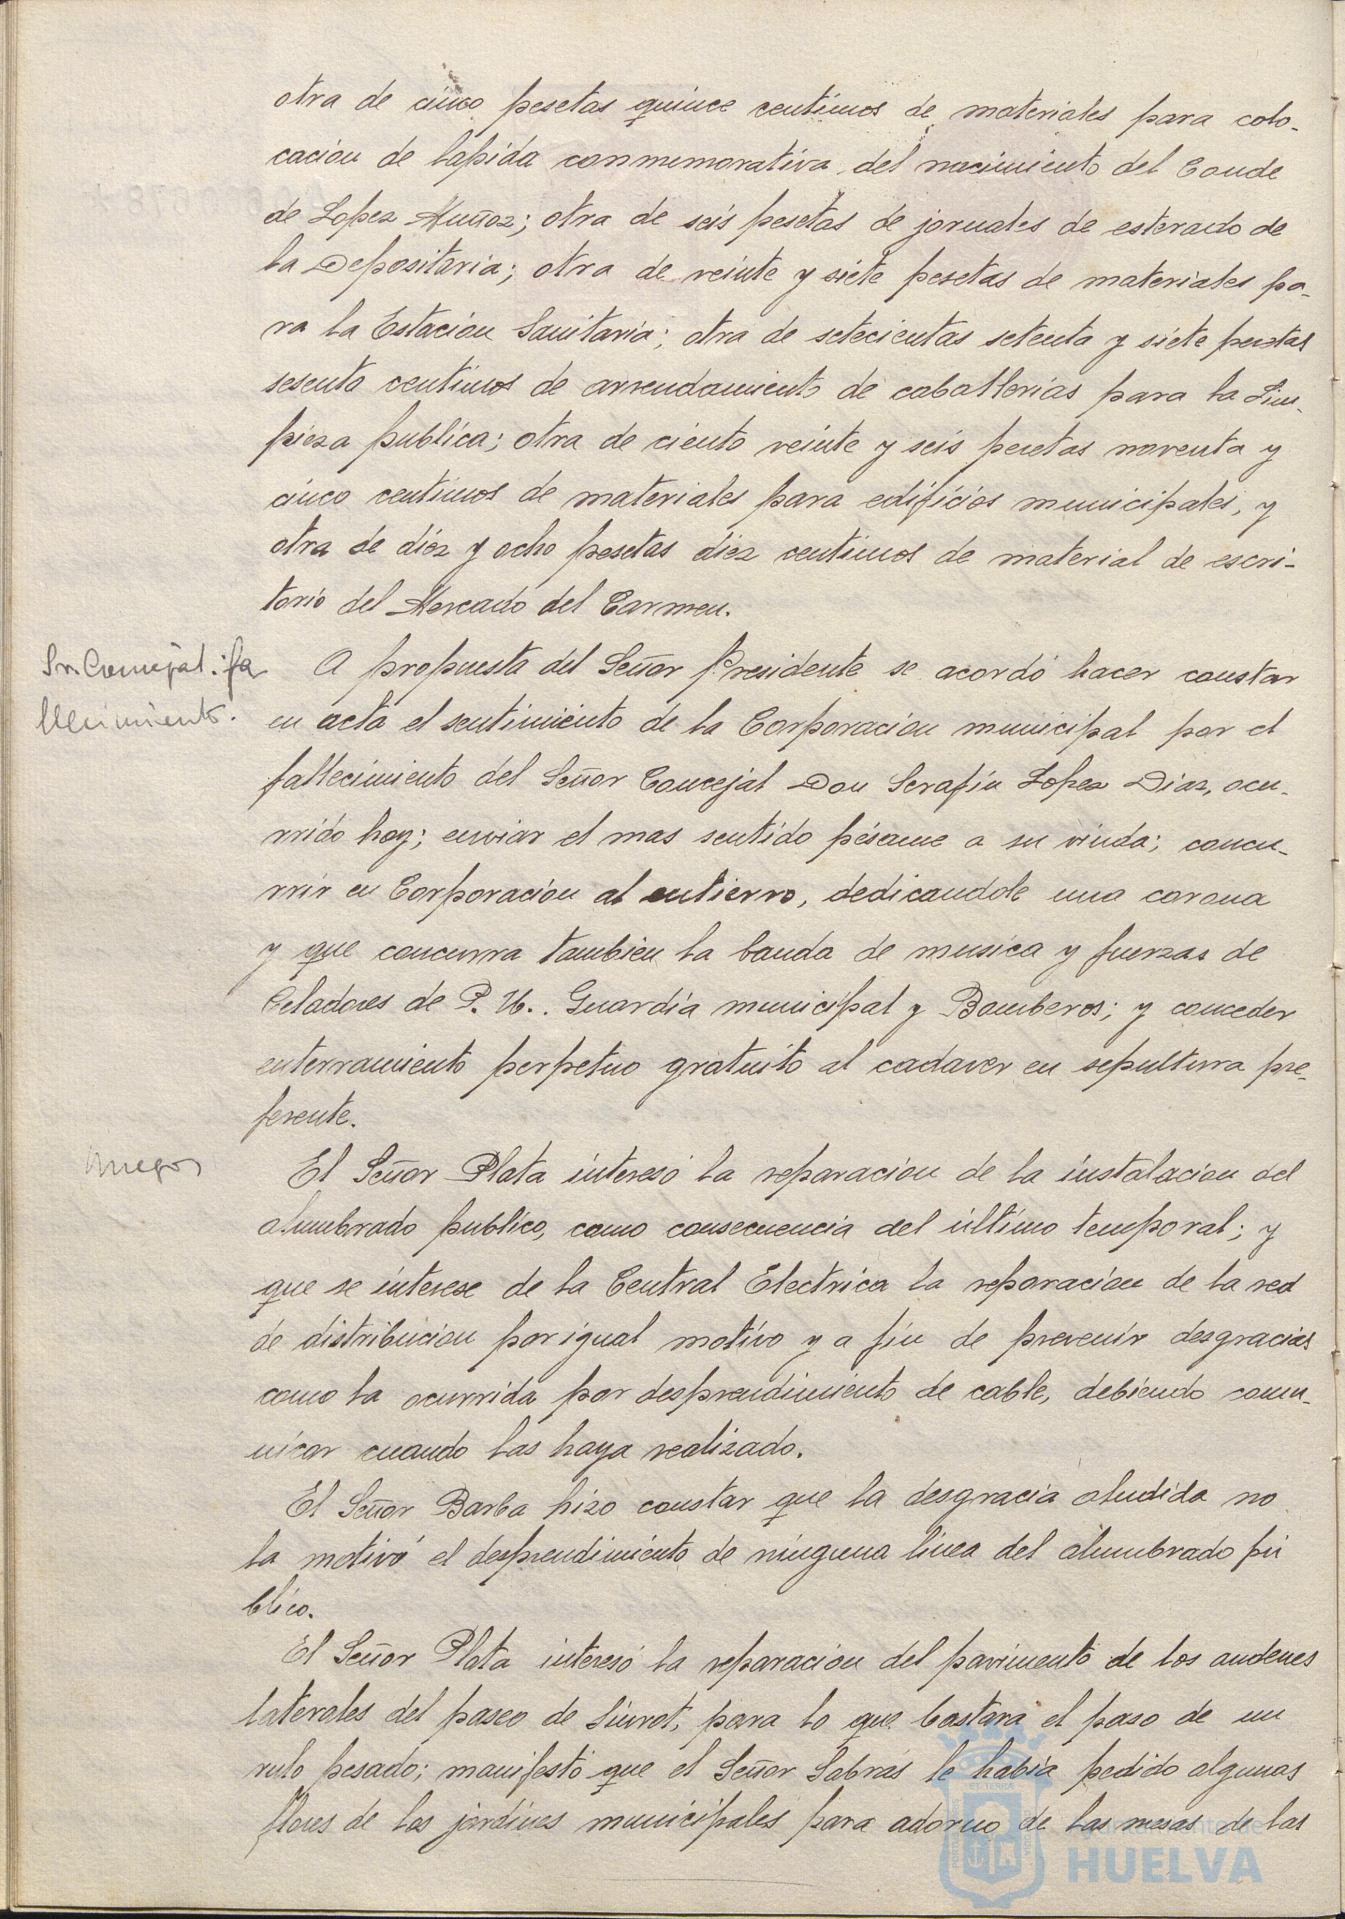 otra de cinco pesetas quince centimos de materiales para colo-
cacion de lapida conmemorativa del nacimiento del Conde
de Lopez Muñoz; otra de seis pesetas de jornales de esterado de
la Depositaria; otra de veinte y siete pesetas de materiales pa-
ra la Estacion Sanitaria; otra de setecientas setenta y siete pesetas
sesenta centimos de arrendamiento de caballerias para la Lim-
pieza publica; otra de ciento veinte y seis pesetas noventa y
cinco centimos de materiales para edificios municipales, y
otra de diez y ocho pesetas diez centimos de material de escri-
torio del Mercado del Carmen.
Sr. Concejal: fa
llecimiento.
A propuesta del Señor Presidente se acordó hacer constar
en acta el sentimiento de la Corporacion municipal por el
fallecimiento del Señor Concejal Don Serafin Lopez Diaz, ocu-
rrido hoy; enviar el mas sentido pésame a su viuda; concu-
rrir en Corporacion al entierro, dedicandole una corona
y que concurra tambien la banda de musica y fuerzas de
Celadores de P. U., Guardia municipal y Bomberos; y conceder
enterramiento perpetuo gratuito al cadaver en sepultura pre-
ferente.
Ruegos
El Señor Plata interesó la reparacion de la instalacion del
alumbrado publico, como consecuencia del último temporal; y
que se interese de la Central Electrica la reparacion de la red
de distribucion por igual motivo y a fin de prevenir desgracias
como la ocurrida por desprendimiento de cable, debiendo comu-
nicar cuando las haya realizado.
El Señor Barba hizo constar que la desgracia aludida no
la motivó el desprendimiento de ninguna linea del alumbrado pú
blico.
El Señor Plata interesó la reparacion del pavimento de los andenes
laterales del paseo de Siurot, para lo que bastara el paso de un
rulo pesado; manifestó que el Señor Sabrás le habia pedido algunas
flores de los jardines municipales para adorno de las mesas de las
Ayuntamiento de
HUELVA